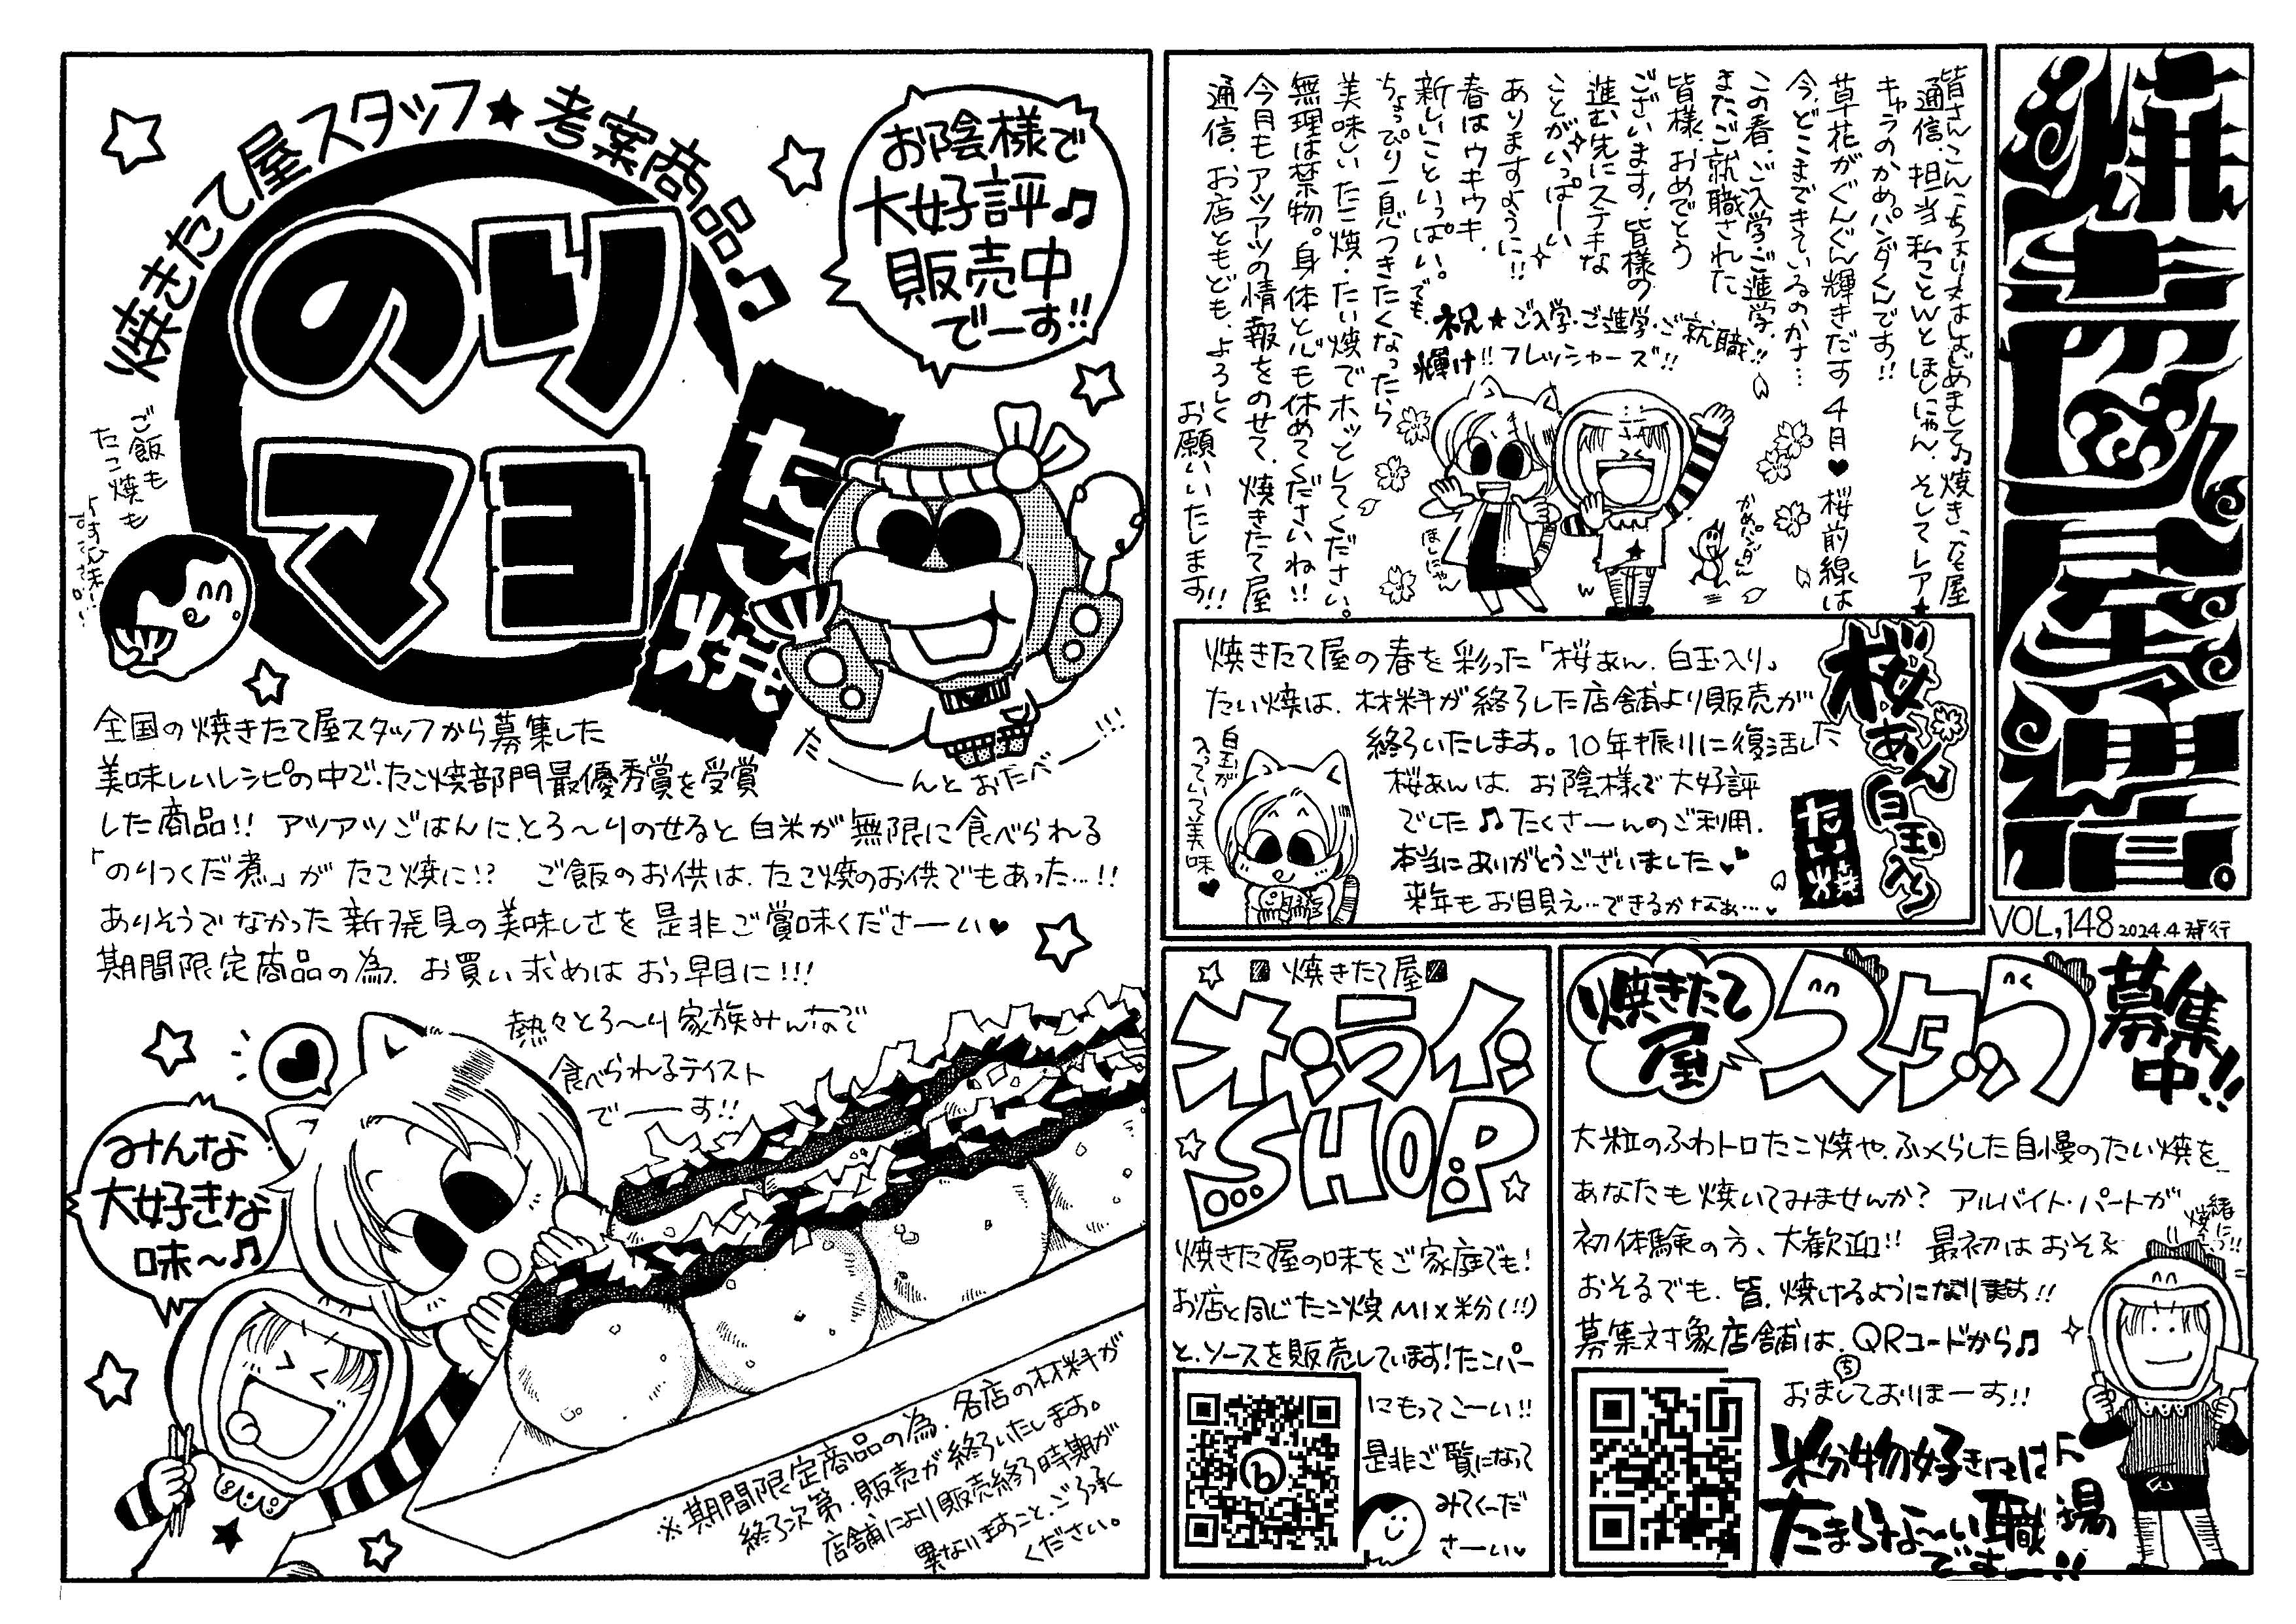 焼きたて屋通信。
VOL,148 2024.4発行
皆さんこんにちは!!はじめまして♪焼きたて屋
通信、担当 私ことWとほしにゃん、そしてレア★
キャラのかめパンダくんです!!
草花がぐんぐん輝きだす4月♥桜前線は
今、どこまできているのかさ…
この春、ご入学、ご進学、
またご就職された
皆様、おめでとう
ございます!皆様の
進む先にステキな
ことがいっぱーい
ありますように!!
春はウキウキ、
新しいこといっぱい。でも、
ちょっぴり一息つきたくなったら
美味しいたこ焼・たい焼でホッとしてください。
無理は禁物。身体と心も休めてくださいね!!
今月もアツアツの情報をのせて、焼きたて屋
通信、お店ともども、よろしく
お願いいたします!!
祝★ご入学・ご進学・ご就職!!
輝け!!フレッシャーズ!!
ほしにゃん
W
かめパンダくん
桜あん白玉入り
たい焼
焼きたて屋の春を彩った「桜あん、白玉入り」
たい焼は、材料が終了した店舗より販売が
終了いたします。10年振りに復活した
桜あんは、お陰様で大好評
でした♫たくさーんのご利用、
本当にありがとうございました♥♥
来年もお目見え…できるかなぁ…♥
白玉が
入っていて美味♥
焼きたて屋スタッフ★考案商品♫
のり
マヨ
たこ焼
お陰様で
大好評♫
販売中
でーす!!
ご飯も
たこ焼も
たーんとおたべー!!!
全国の焼きたて屋スタッフから募集した
美味しいレシピの中で、たこ焼部門最優秀賞を受賞
した商品!! アツアツごはんに、とろ〜りのせると白米が無限に食べられる
「のりつくだ煮」がたこ焼に!? ご飯のお供は、たこ焼のお供でもあった…!!
ありそうでなかった新発見の美味しさを是非ご賞味くださーい♥
期間限定商品の為、お買い求めはおっ早目に!!!
熱々とろ〜り家族みんなで
食べられるテイスト
でーす!!
みんな
大好きな
味〜♫
※期間限定商品の為、各店の材料が
終了次第、販売が終了いたします。
店舗により販売終了時期が
異なりますこと、ご了承
ください。
焼きたて屋
オンライン
SHOP
焼きたて屋の味をご家庭でも!
お店と同じたこ焼MIX粉(!!)
と、ソースを販売しています!たこパー
にもってこーい!!
是非ご覧になって
みてくーだ
さーい♥
焼きたて屋
スタッフ募集中!!
大粒のふわトロたこ焼や、ふっくらした自慢のたい焼を
あなたも焼いてみませんか? アルバイト・パートが
初体験の方、大歓迎!! 最初はおそる
おそるでも、皆、焼けるようになります!!
募集対象店舗は、QRコードから♫
おまちしておりまーす!!
一緒に
焼こう!!
粉物好きには
たまらなーい職場
でーす!!